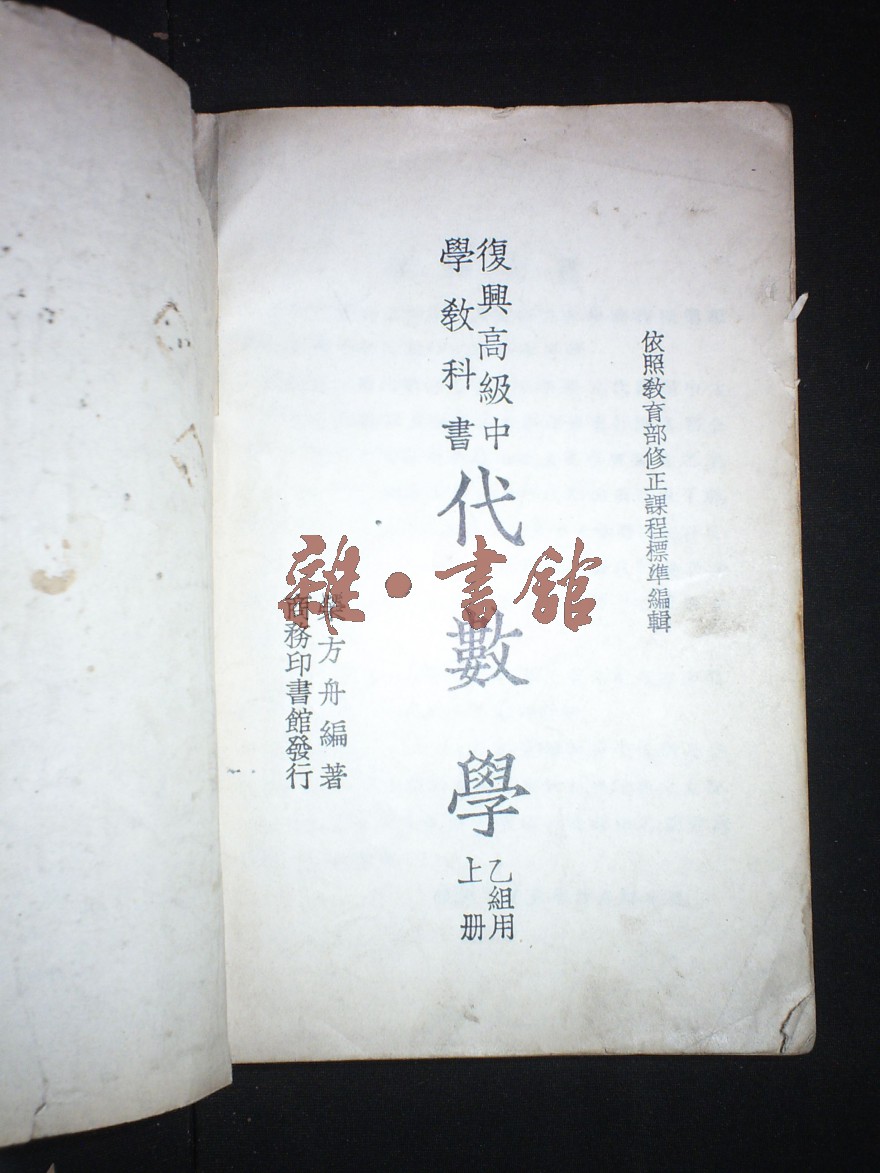 依照教育部修正課程標準編輯
復興高級中
學教科書
代數學
乙組用
上册
方舟編著
商務印書館發行
雜·書館